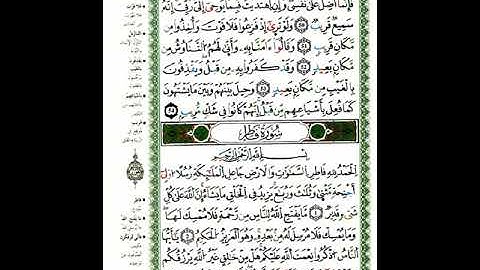 فَإِنَّمَا أَضِلُّ عَلَىٰ نَفْسِي وَإِنِ اهْتَدَيْتُ فَبِمَا يُوحِي إِلَيَّ رَبِّي إِنَّهُ
سَمِيعٌ قَرِيبٌ ٥٠ وَلَوْ تَرَىٰ إِذْ فَزِعُوا فَلَا فَوْتَ وَأُخِذُوا مِنْ
مَكَانٍ قَرِيبٍ ٥١ وَقَالُوا آمَنَّا بِهِ وَأَنَّىٰ لَهُمُ التَّنَاوُشُ مِنْ
مَكَانٍ بَعِيدٍ ٥٢ وَقَدْ كَفَرُوا بِهِ مِنْ قَبْلُ وَيَقْذِفُونَ
بِالْغَيْبِ مِنْ مَكَانٍ بَعِيدٍ ٥٣ وَحِيلَ بَيْنَهُمْ وَبَيْنَ مَا يَشْتَهُونَ
كَمَا فُعِلَ بِأَشْيَاعِهِمْ مِنْ قَبْلُ إِنَّهُمْ كَانُوا فِي شَكٍّ مُرِيبٍ ٥٤
سُورَةُ فَاطِرٍ
بِسْمِ اللَّهِ الرَّحْمَٰنِ الرَّحِيمِ
الْحَمْدُ لِلَّهِ فَاطِرِ السَّمَاوَاتِ وَالْأَرْضِ جَاعِلِ الْمَلَائِكَةِ رُسُلًا أُولِي
أَجْنِحَةٍ مَثْنَىٰ وَثُلَاثَ وَرُبَاعَ يَزِيدُ فِي الْخَلْقِ مَا يَشَاءُ إِنَّ اللَّهَ عَلَىٰ كُلِّ
شَيْءٍ قَدِيرٌ ١ مَا يَفْتَحِ اللَّهُ لِلنَّاسِ مِنْ رَحْمَةٍ فَلَا مُمْسِكَ لَهَا
وَمَا يُمْسِكْ فَلَا مُرْسِلَ لَهُ مِنْ بَعْدِهِ وَهُوَ الْعَزِيزُ الْحَكِيمُ ٢ يَا أَيُّهَا
النَّاسُ اذْكُرُوا نِعْمَتَ اللَّهِ عَلَيْكُمْ هَلْ مِنْ خَالِقٍ غَيْرُ اللَّهِ يَرْزُقُكُمْ